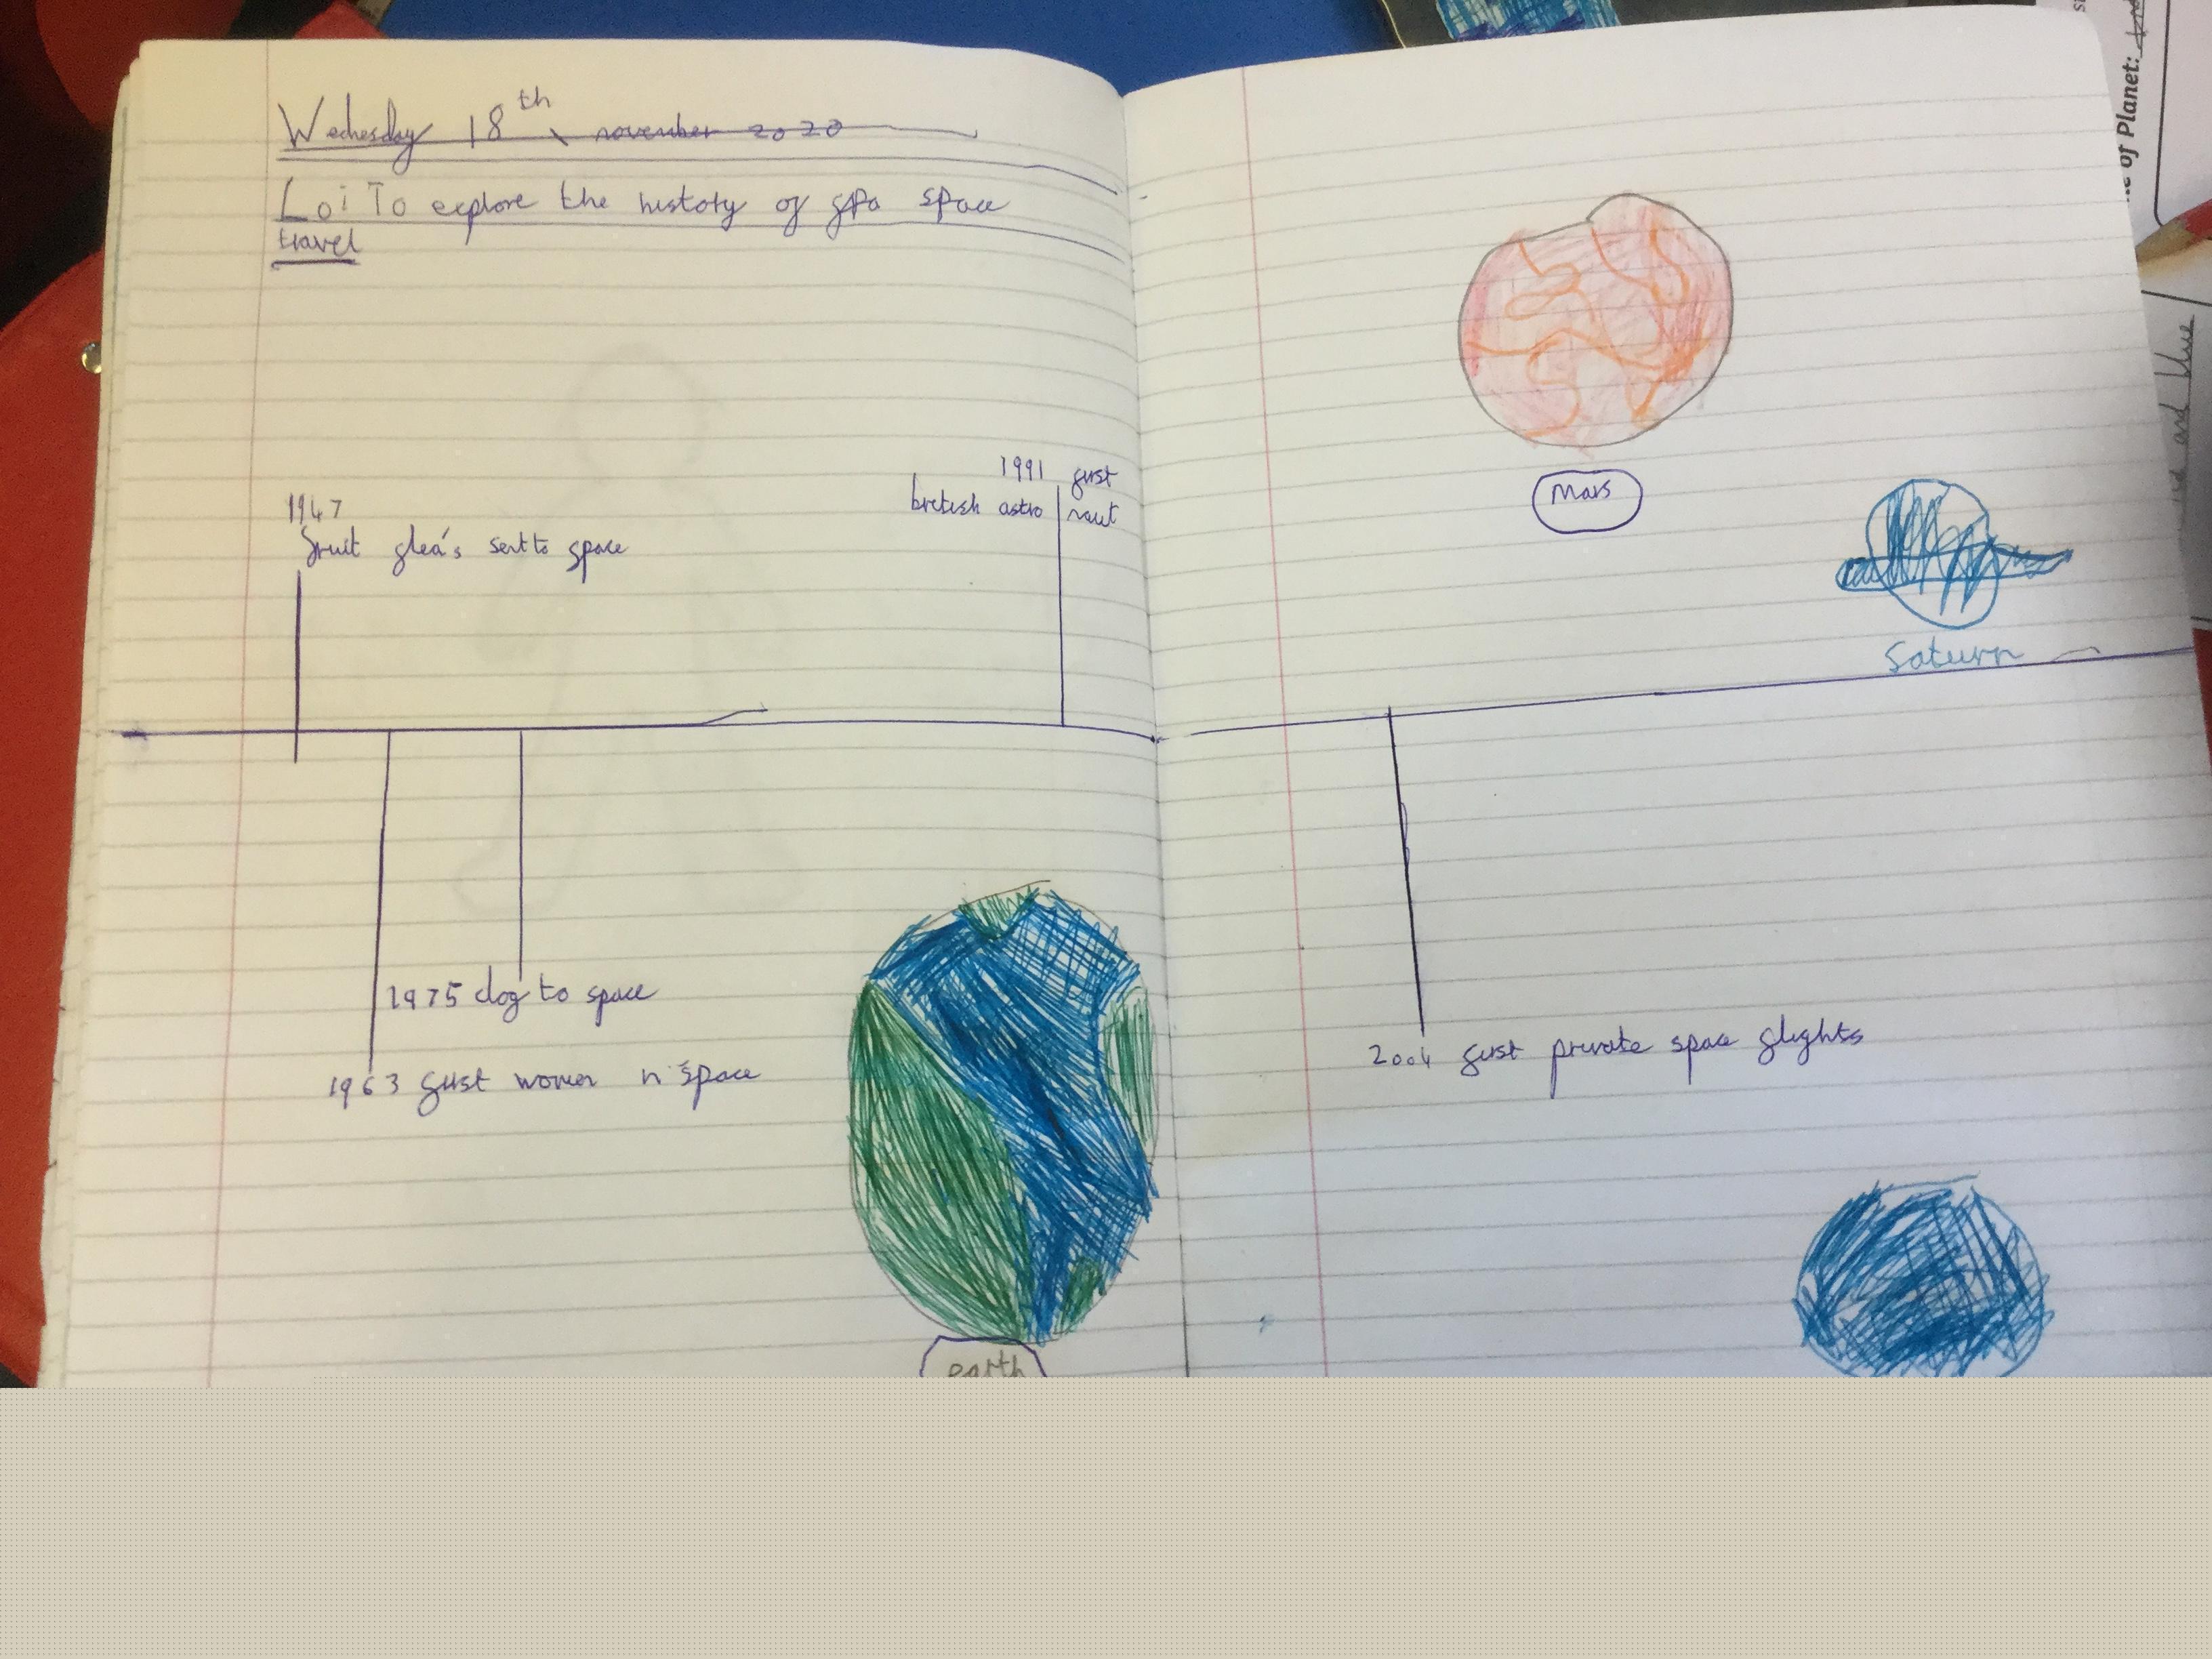 Wednesday 18th november 2020
Lo: To explore the history of spa space
travel
1947
fruit flea's sent to space
1991 first
british astro naut
1975 dog to space
1963 first women n space
earth
Mars
Saturn
2004 first private space flights
of Planet:
and blue